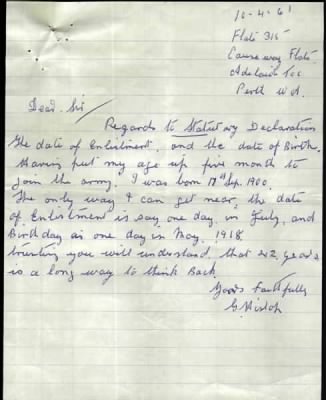 10-4-61
Flats 315
Causeway Flats
Adelaide Tce
Perth W.A.
Dear Sir/
Regards to Statutary Declaration
The date of Enlistment, and the date of Birth.
Having put my age up five month to
join the army. I was born 17th Sep. 1900.
The only way I can get near the date
of Enlistment is say one day in July, and
Birthday as one day in May, 1918.
trusting you will understand, that 42 years
is a long way to think Back,
Yours Faithfully